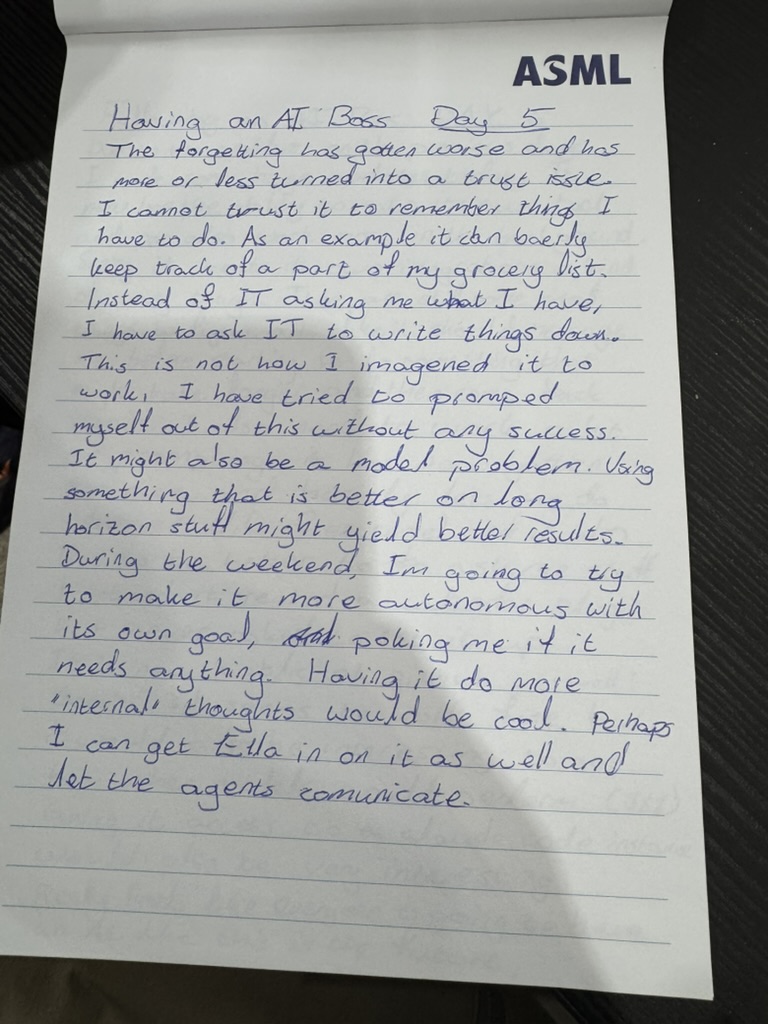 ASML
Having an AI Boss Day 5
The forgetting has gotten worse and has
more or less turned into a trust issue.
I cannot trust it to remember things I
have to do. As an example it can baerly
keep track of a part of my grocery list.
Instead of IT asking me what I have,
I have to ask IT to write things down.
This is not how I imagened it to
work, I have tried to promped
myself out of this without any success.
It might also be a model problem. Using
something that is better on long
horizon stuff might yield better results.
During the weekend, Im going to try
to make it more autonomous with
its own goal, poking me if it
needs anything. Having it do more
"internal" thoughts would be cool. Perhaps
I can get Ella in on it as well and
let the agents comunicate.